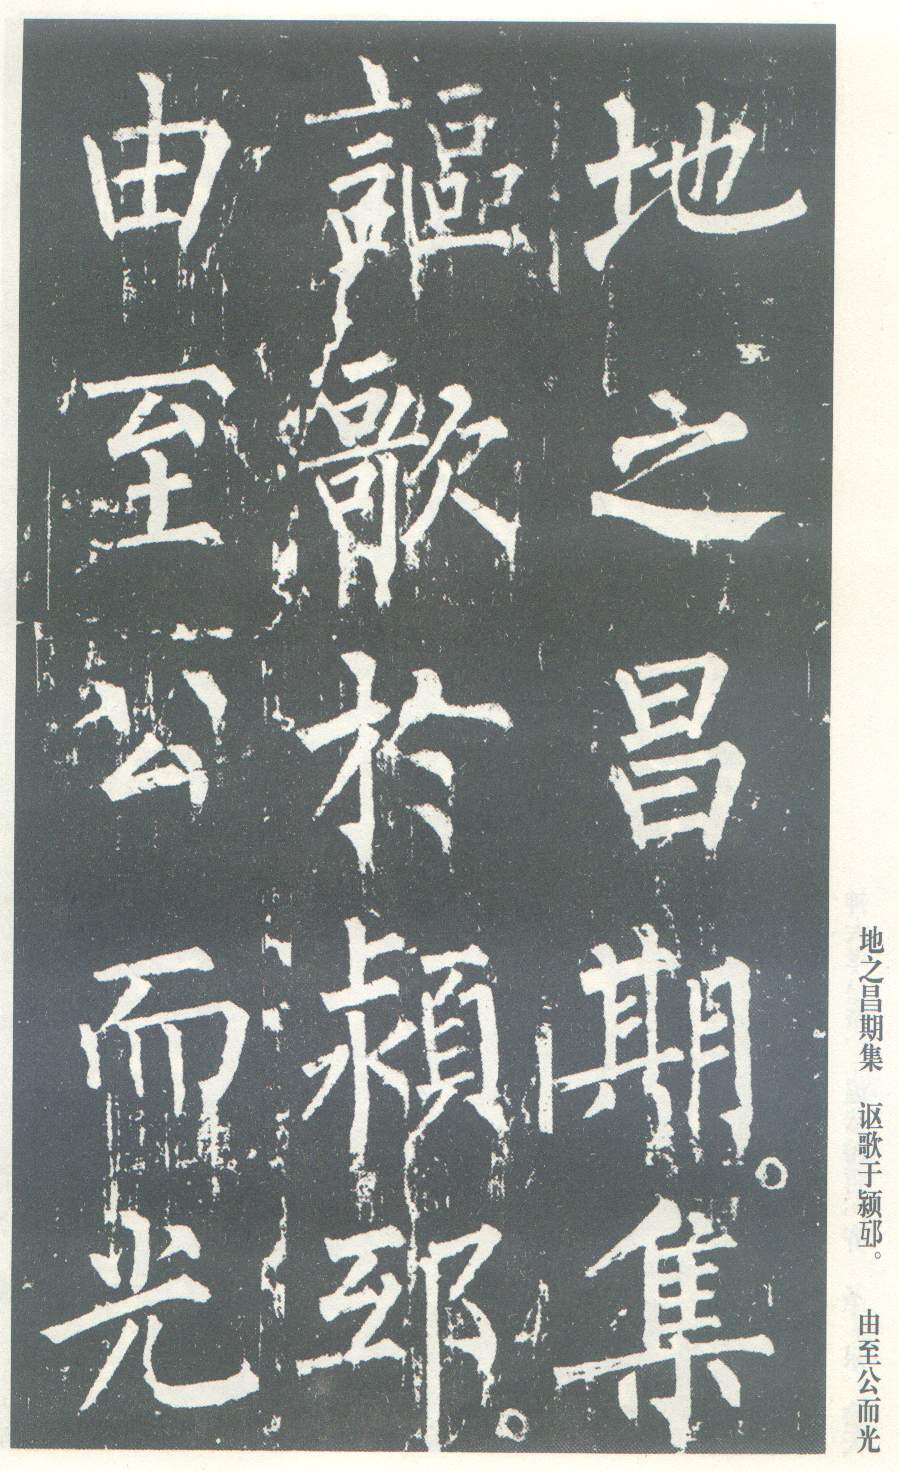 地之昌期。集
謳歌於潁邸。
由至公而光
地之昌期集　讴歌于颍邸。　由至公而光